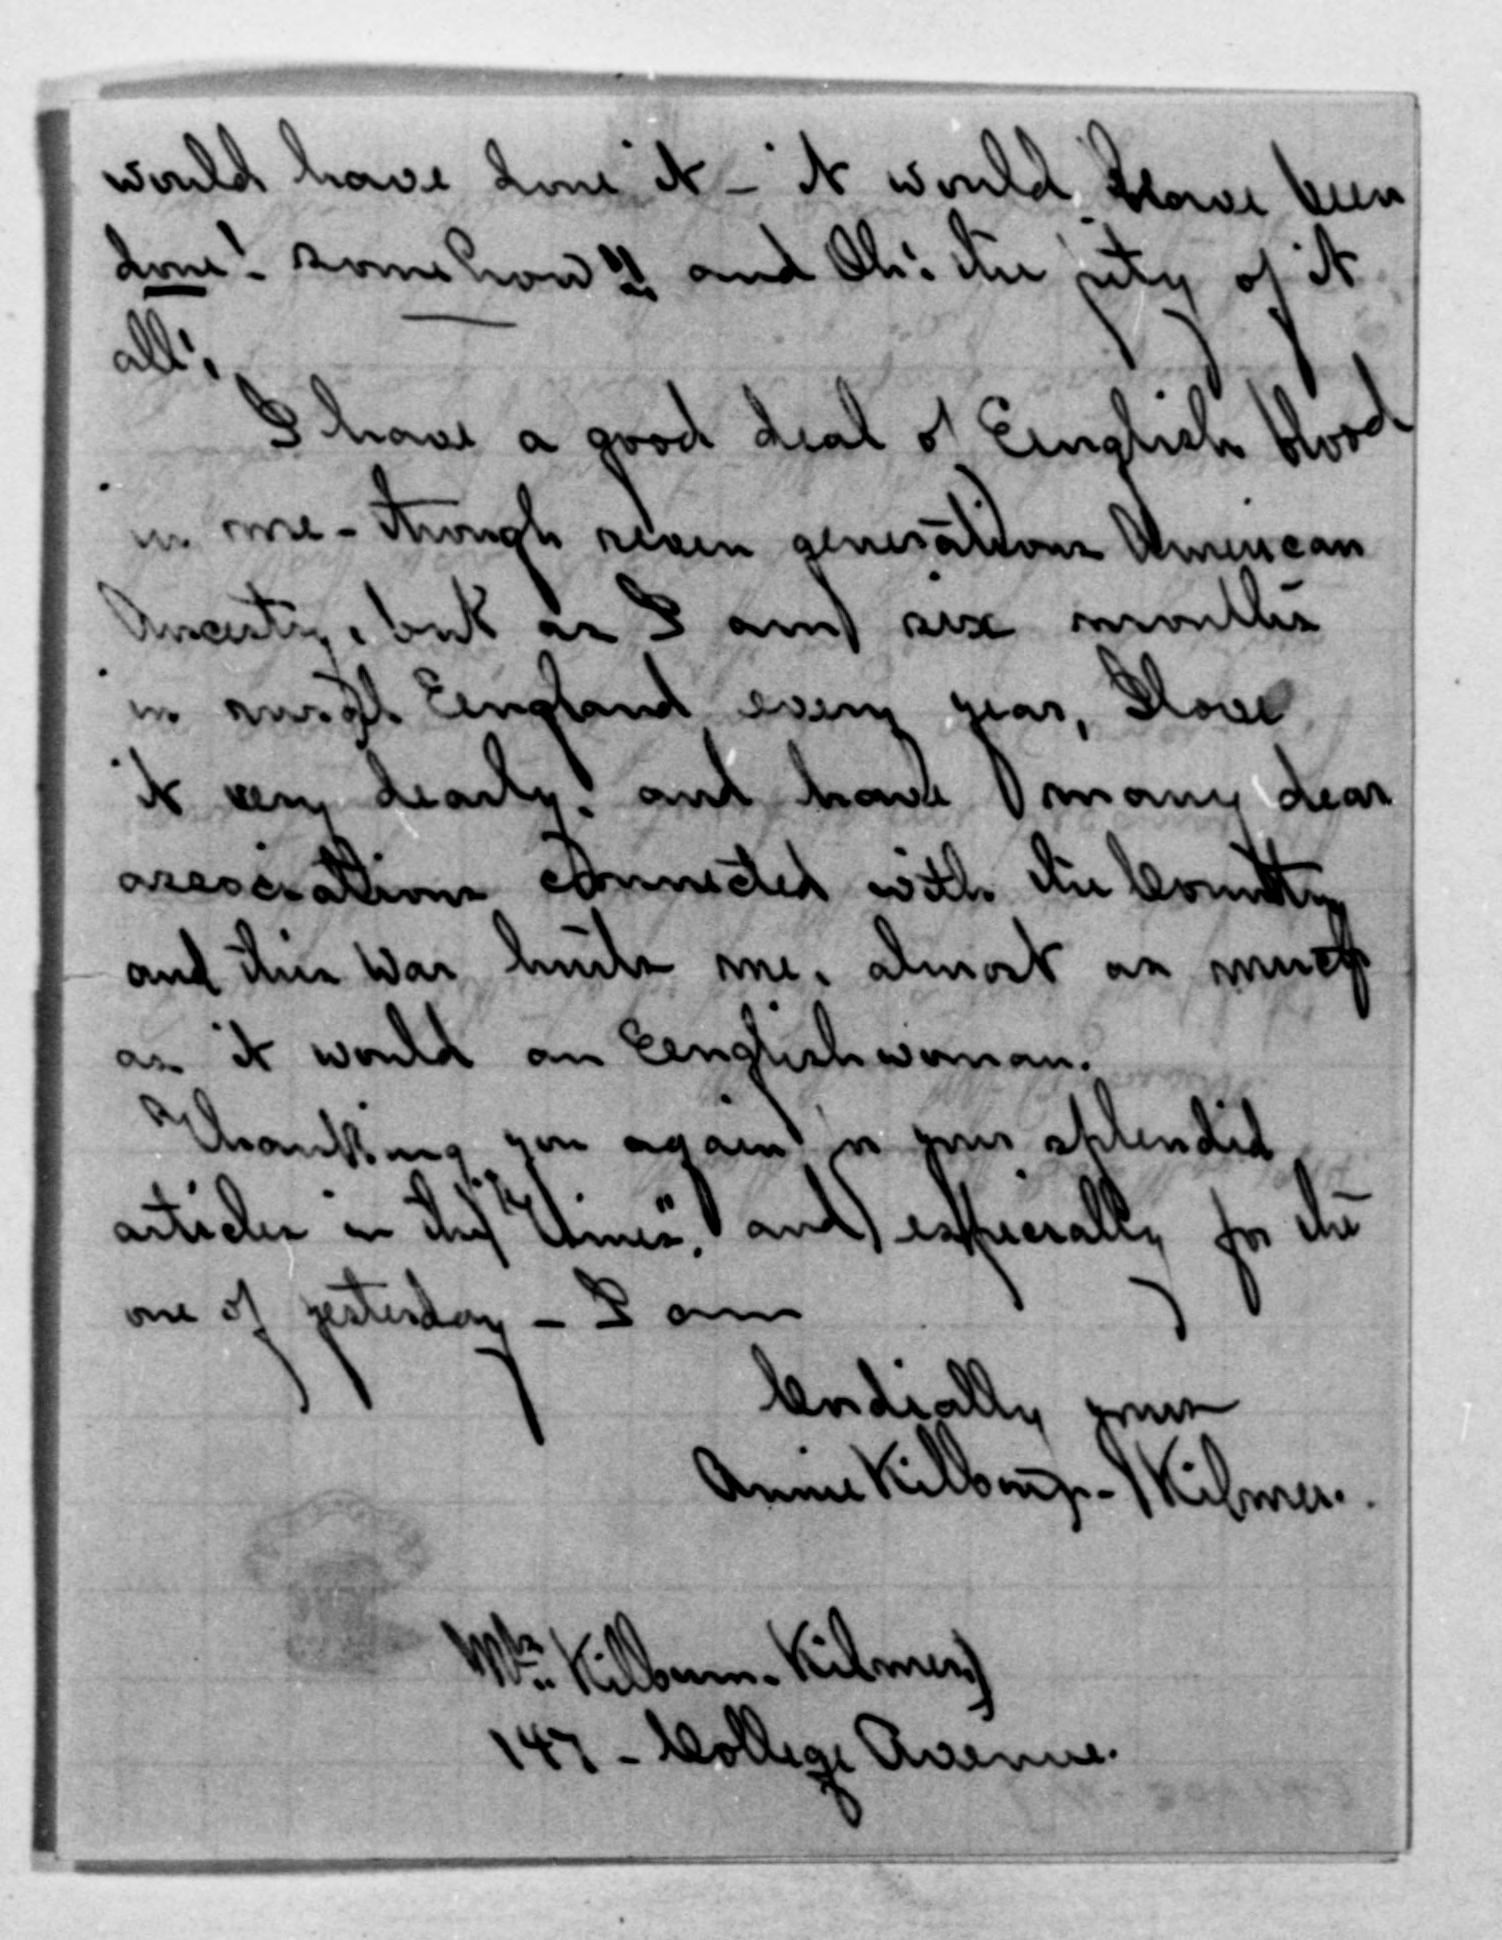 would have done it - it would have been
done! - somehow!! and Oh! the pity of it
all!
I have a good deal of English blood
in me - though seven generations American
Ancestry, but as I am six months
in rural England every year, I love
it very dearly! and have many dear
associations connected with the Country
and this war hurts me, almost as much
as it would an Englishwoman.
Thanking you again for your splendid
articles in the "Times", and especially for the
one of yesterday - I am
Cordially yours
Annie Kilburn-Kilmer.
Mrs. Kilburn-Kilmer)
147 - College Avenue.